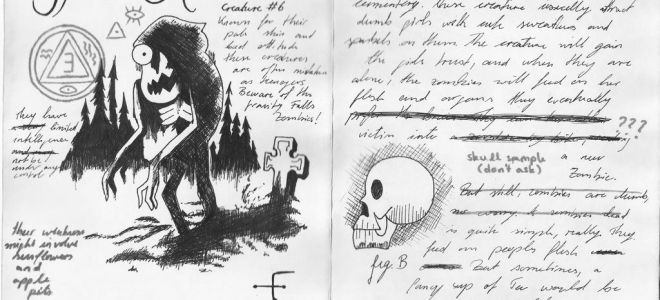 Creature #6
Known for their
pale skin and
bad attitude
these creatures
are often mistaken
as teenagers.
Beware of the
Gravity Falls
Zombies!
they have
limited
intelligence
their weakness
might involve
sunflowers
and
apple
pits
these creature usually
dumb girls with cute sweaters and
on them. The creature will gain
the girls trust, and when they are
alone, the zombies will feed on her
flesh and organs they eventually
???
victim into
a new
Zombie.
skull sample
(don't ask)
But still, zombies are dumb,
is quite simple, really. They
feed on peoples flesh
But sometimes, a
fancy cup of Tea would be
fig. B